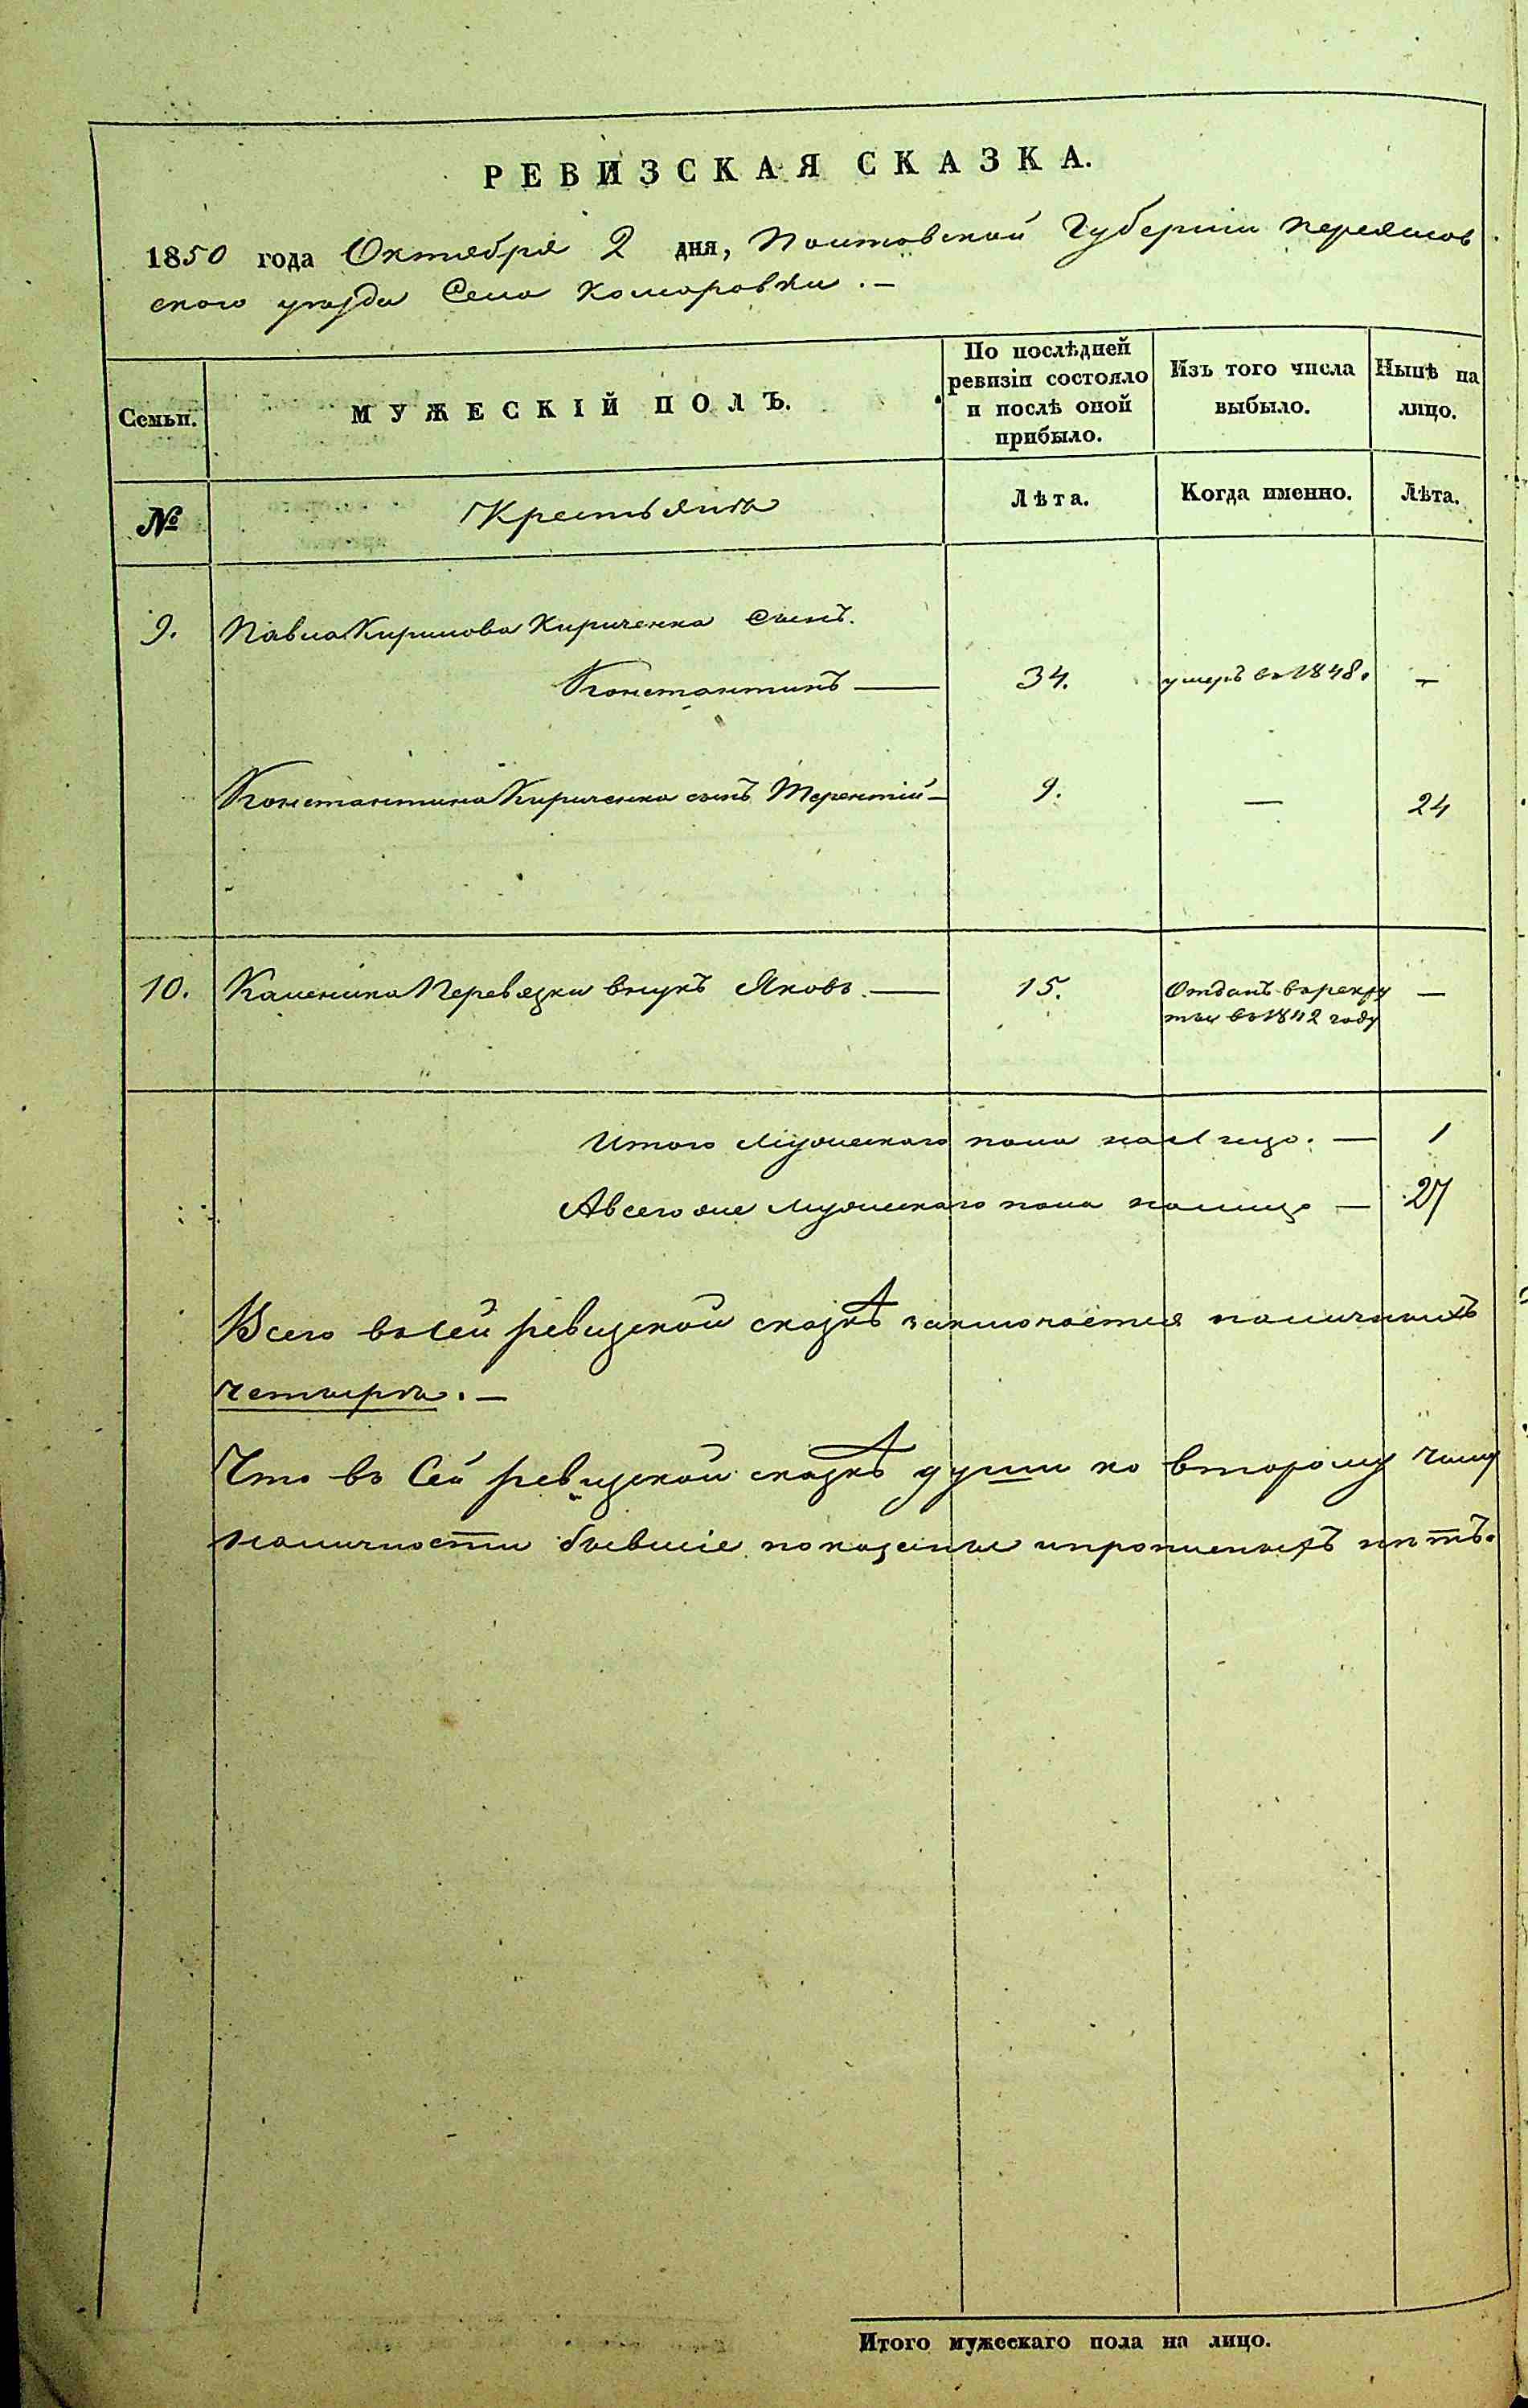 РЕВИЗСКАЯ СКАЗКА.
1850 года Октября 2 дня, Полтавской Губернии Переяслов
ского уѣзда Села Комаровки. —
Семьи.
МУЖЕСКІЙ ПОЛЪ.
По послѣдней
ревизіи состояло
и послѣ оной
прибыло.
Изъ того числа
выбыло.
Нынѣ на
лицо.
№
Крестьяня
Лѣта.
Когда именно.
Лѣта.
9. Павла Кирилова Кириченка Сынъ.
Константинъ — 34. умеръ въ 1848. —
Константина Кириченка сынъ Терентій — 9. — 24
10. Каленика Перевязки внукъ Яковъ. — 15. Отданъ в рекру —
ты въ 1842 году
Итого Мужескаго пола на Лицо. — 1
А всего же Мужескаго пола на лицо — 27
Всего в сей ревизской сказкѣ заключается наличныхъ
четыря. —
Что въ Сей ревизской сказкѣ души ко второму
наличности бывшіе показаны и прописныхъ нѣтъ.
Итого мужескаго пола на лицо.